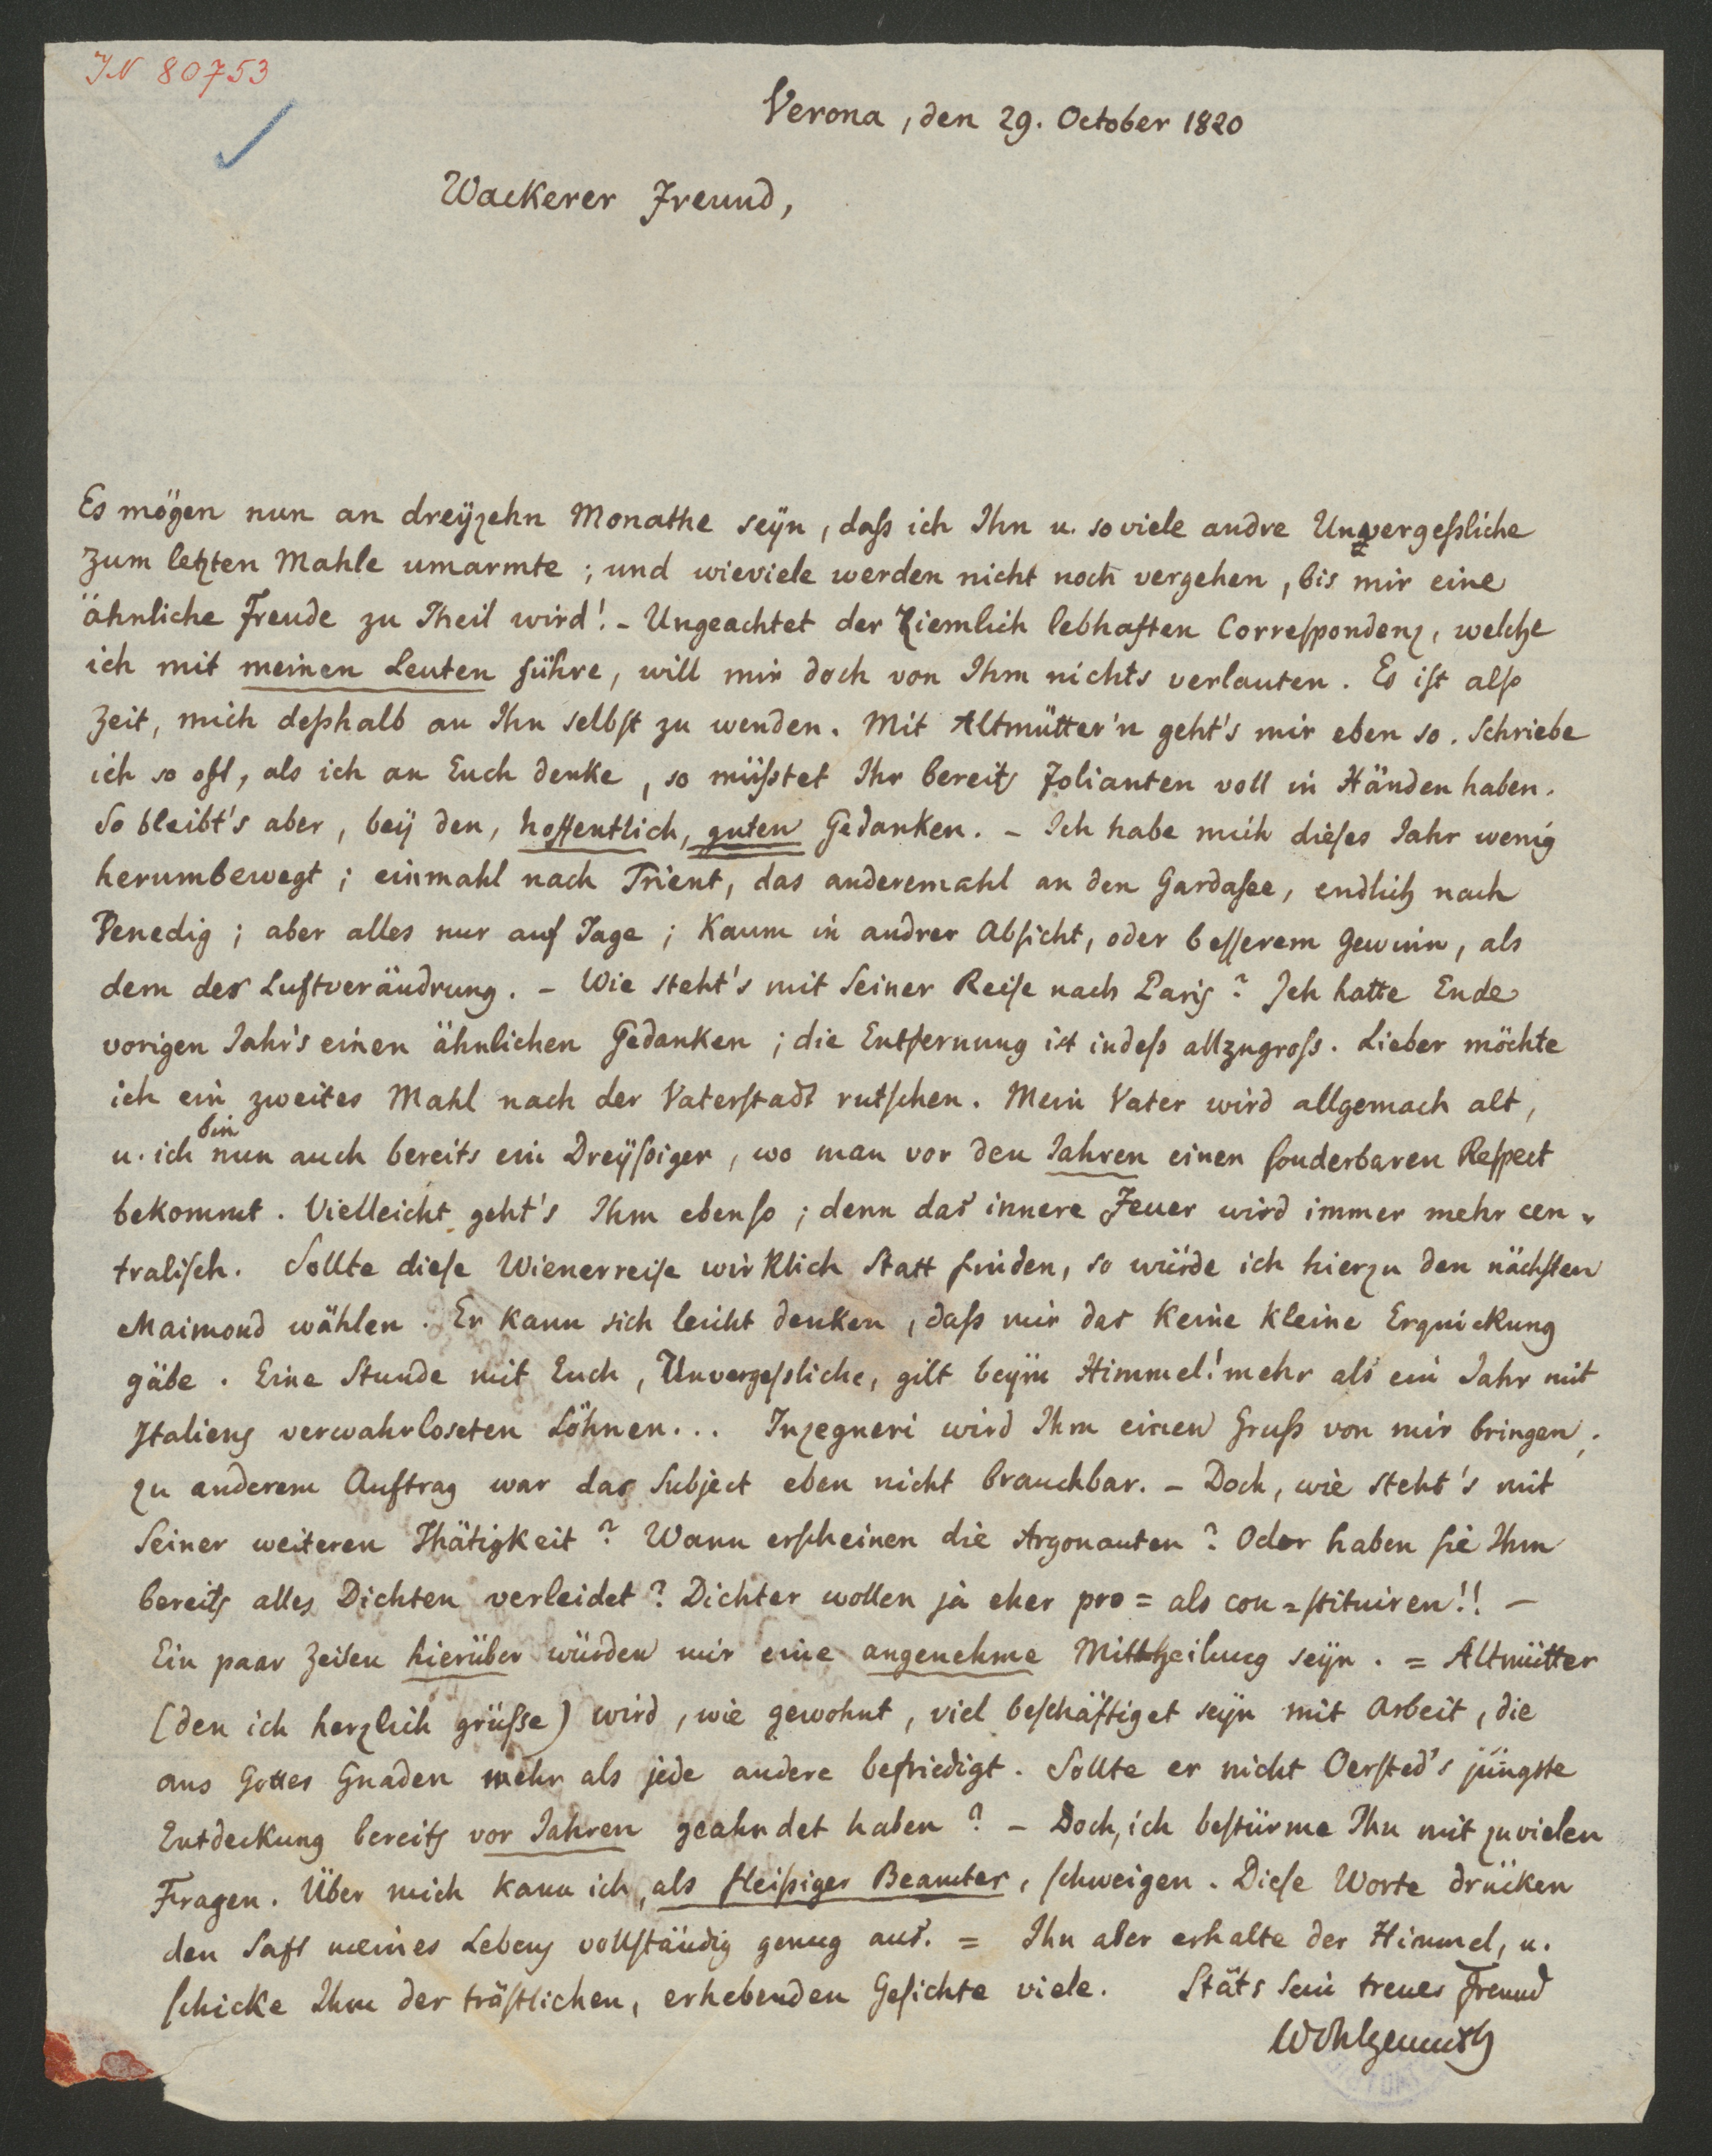 IN 80753
Verona, den 29. October 1820
Wackerer Freund,
Es mögen nun an dreyzehn Monathe seyn, daß ich Ihn u. soviele andre Unvergeßliche
zum letzten Mahle umarmte; und wieviele werden nicht noch vergehen, bis mir eine
ähnliche Freude zu Theil wird! – Ungeachtet der ziemlich lebhaften Correspondenz, welche
ich mit meinen Leuten führe, will mir doch von Ihm nichts verlauten. Es ist also
Zeit, mich deßhalb an Ihn selbst zu wenden. Mit Altmütter'n geht's mir eben so. Schriebe
ich so oft, als ich an Euch denke, so müßtet Ihr bereits Folianten voll in Händen haben.
So bleibt's aber, bey den, hoffentlich, guten Gedanken. – Ich habe mich dieses Jahr wenig
herumbewegt; einmahl nach Trient, das anderemahl an den Gardasee, endlich nach
Venedig; aber alles nur auf Tage; kaum in andrer Absicht, oder besserem Gewinn, als
dem der Luftverändrung. – Wie steht's mit Seiner Reise nach Paris? Ich hatte Ende
vorigen Jahr's einen ähnlichen Gedanken; die Entfernung ist indeß allzugroß. Lieber möchte
ich ein zweites Mahl nach der Vaterstadt rutschen. Mein Vater wird allgemach alt,
u. ich bin nun auch bereits ein Dreyßiger, wo man vor den Jahren einen sonderbaren Respect
bekommt. Vielleicht geht's Ihm ebenso; denn das innere Feuer wird immer mehr cen-
tralisch. Sollte diese Wienerreise wirklich Statt finden, so würde ich hierzu den nächsten
Maimond wählen. Er kann sich leicht denken, daß mir das keine kleine Erquickung
gäbe. Eine Stunde mit Euch, Unvergeßliche, gilt beym Himmel! mehr als ein Jahr mit
Italiens verwahrloseten Söhnen... Inzegneri wird Ihm einen Gruß von mir bringen;
zu anderem Auftrag war das Subject eben nicht brauchbar. – Doch, wie steht's mit
Seiner weiteren Thätigkeit? Wann erscheinen die Argonauten? Oder haben sie Ihm
bereits alles Dichten verleidet? Dichter wollen ja eher pro = als con = stituiren!! –
Ein paar Zeilen hierüber würden mir eine angenehme Mittheilung seyn. = Altmütter
(den ich herzlich grüße) wird, wie gewohnt, viel beschäftiget seyn mit Arbeit, die
aus Gottes Gnaden mehr als jede andere befriedigt. Sollte er nicht Oersted's jüngste
Entdeckung bereits vor Jahren geahndet haben? – Doch, ich bestürme Ihn mit zuvielen
Fragen. Über mich kann ich, als fleißiger Beamter, schweigen. Diese Worte drücken
den Saft meines Lebens vollständig genug aus. = Ihn aber erhalte der Himmel, u.
schicke Ihm der tröstlichen, erhebenden Gesichte viele. Stäts Sein treuer Freund
Wohlgemuth